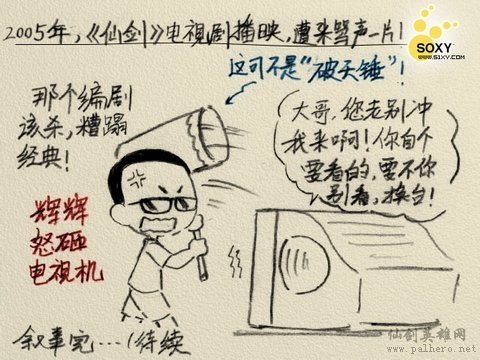 2005年，《仙剑》电视剧播映，遭来骂声一片！
SOXY
www.51XY.com
这可不是“破天锤”！
那个编剧
该杀，糟蹋
经典！
大哥，您老别冲
我来啊！你自个
要看的，要不你
别看，换台！
辉辉
怒砸
电视机
叙事完……(待续
仙剑英雄网
www.palhero.net